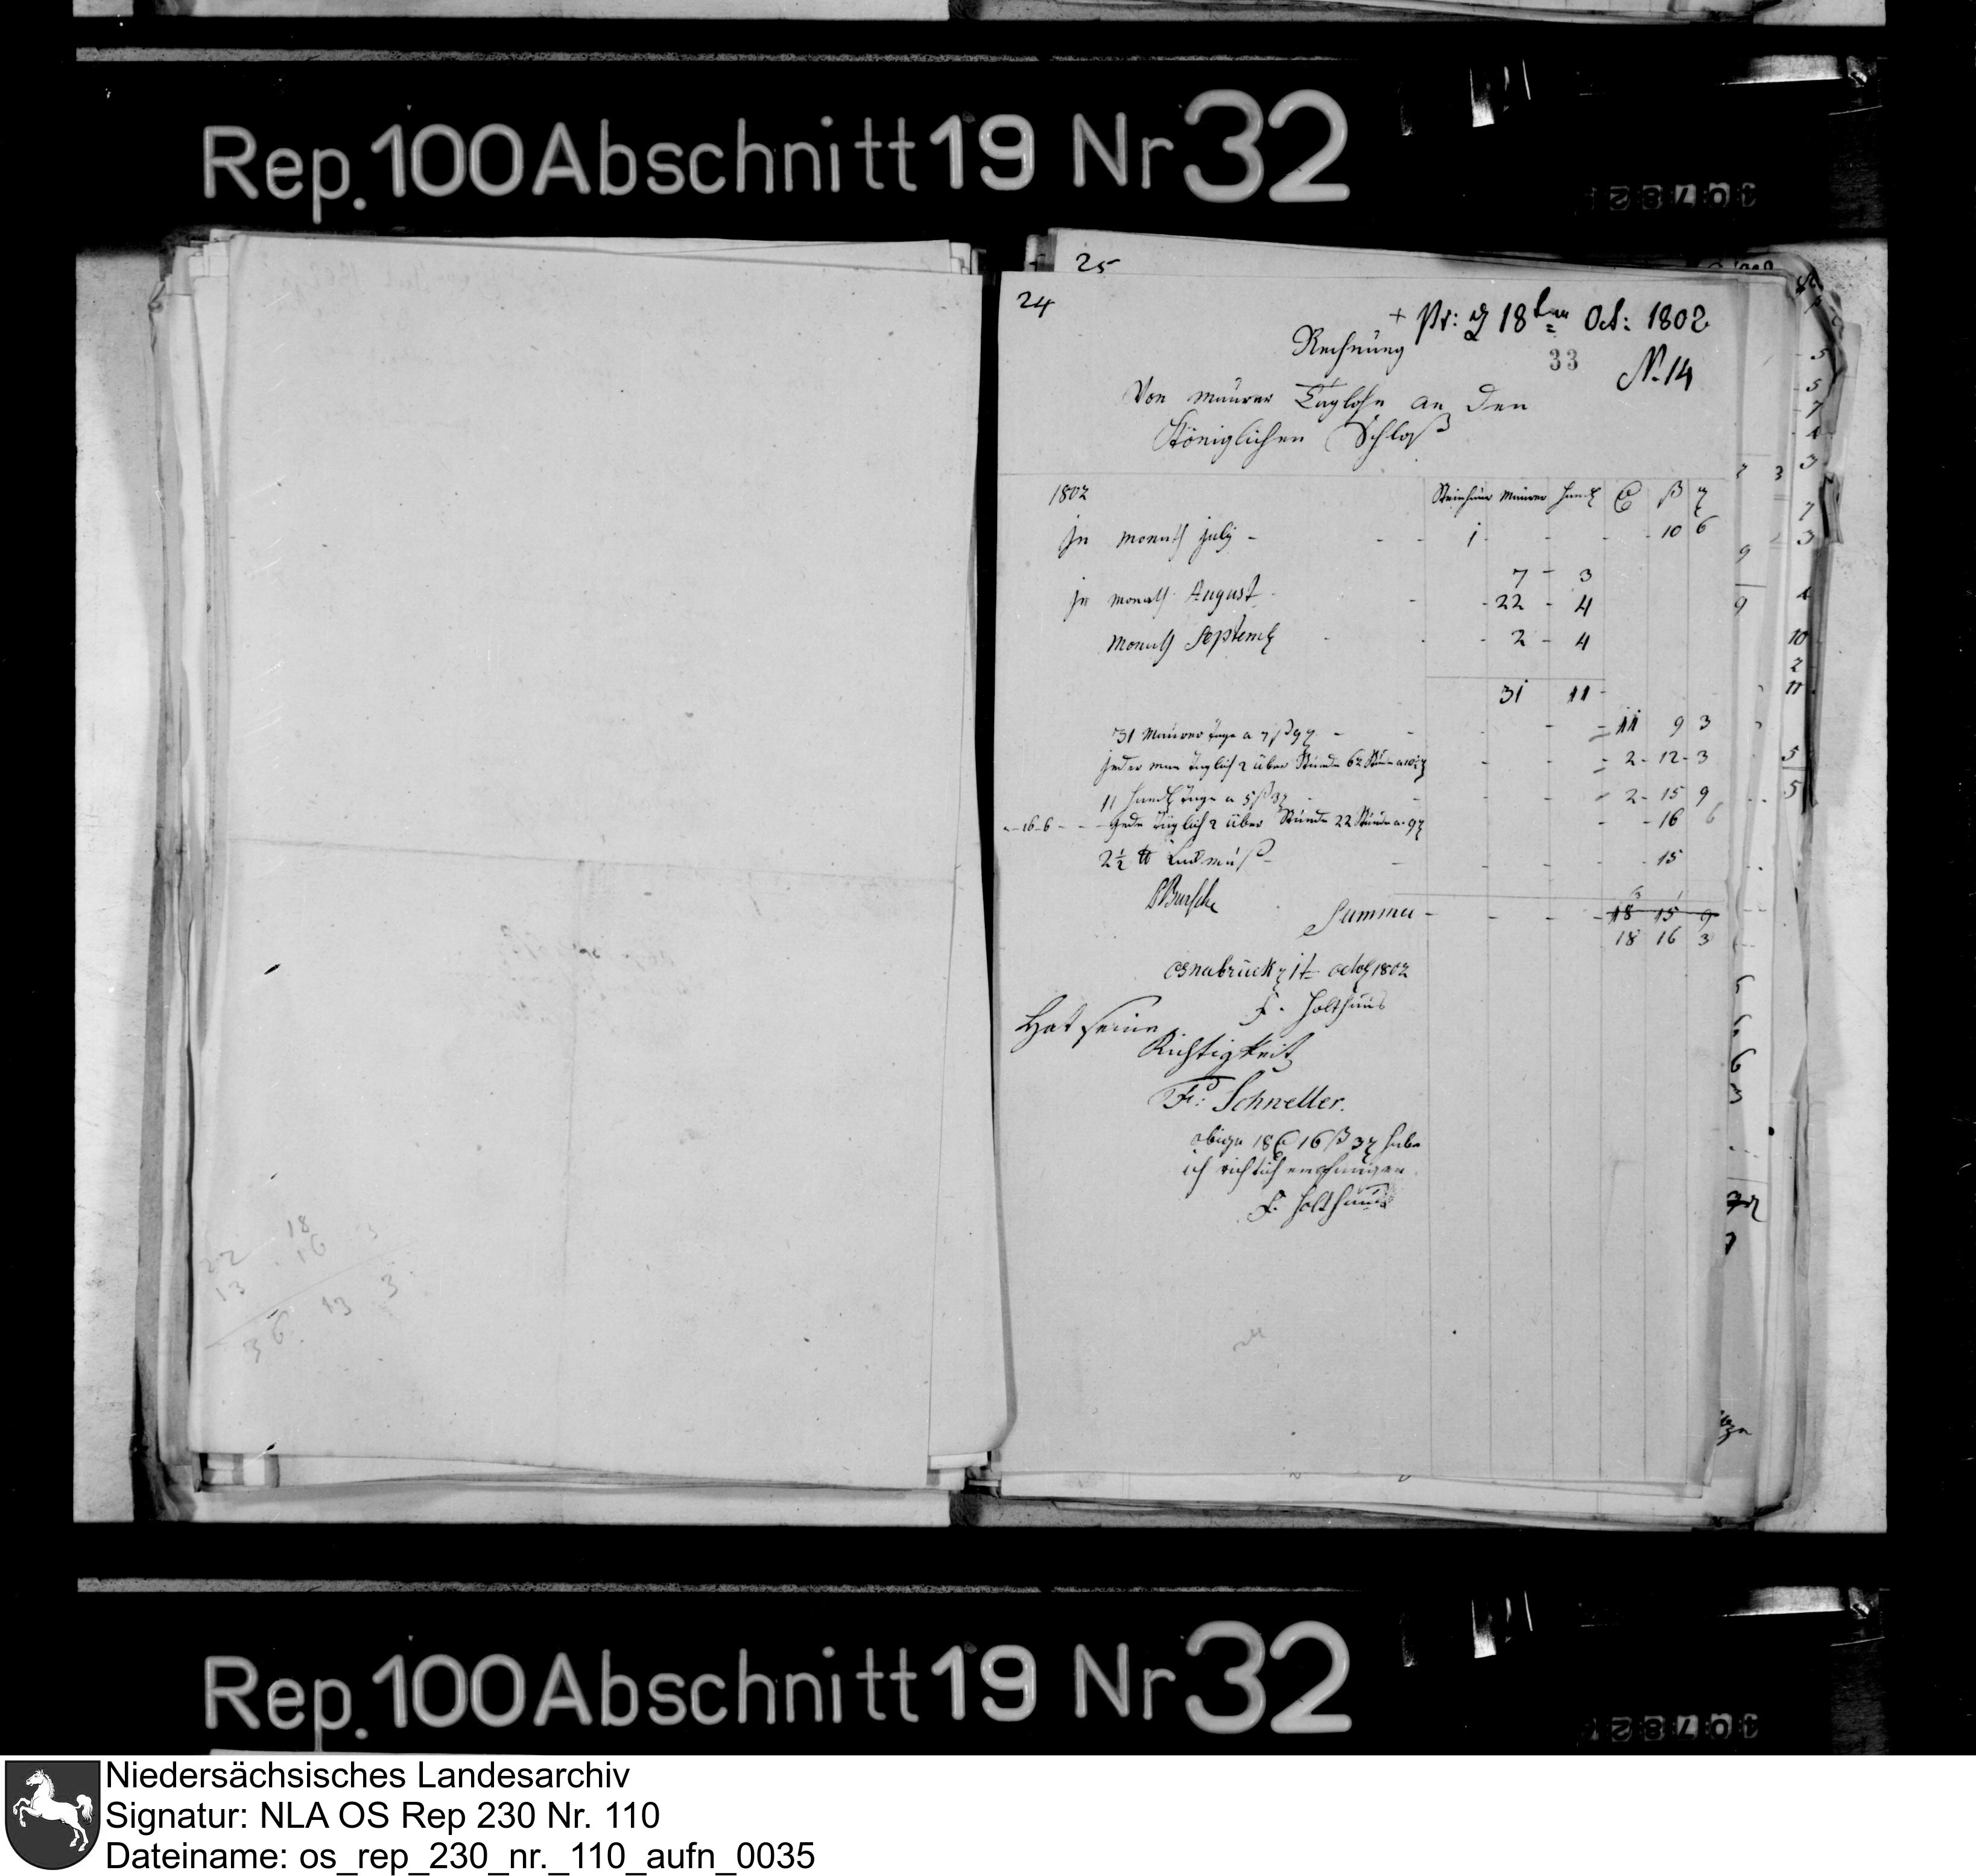 Rep. 100 Abschnitt 19 Nr 32
25
24
+ Pr: d 18ten Oct: 1802
Rechnüng
33
N. 14
Von maürer Taglohn an den
Königlichen Schloß
1802
Steinhaür Maürer Handl
ß
jn monath july - - - 1 - - - - 10 6
7 - 3
jn monath August - - - 22 - 4
Monath Septemb - - - 2 - 4
31 11
31 Maürer Tage a 7 ß 9 - - - - 11 9 3
jeder man täglich 2 über Stünde 62 Stünde a - - - 2 - 12 - 3
11 Handl Tage a 5 ß 3 - - - 2 - 15 9
- 16 - 6 - - - Jede täglich 2 über Stünde 22 Stünde a 9 - - 16 6
2½ ℔ - - - - 15
Summa - - - - 18 15 9
18 16 3
Osnabrück d 1t octob 1802
F. Holthaus
Hat seine
Richtigkeit
Fr: Schneller.
obige 18 16 ß 3 habe
ich richtich empfangen
F. Holthaus
18
22 16 3
13
36. 13 3
Rep. 100 Abschnitt 19 Nr 32
Niedersächsisches Landesarchiv
Signatur: NLA OS Rep 230 Nr. 110
Dateiname: os_rep_230_nr._110_aufn_0035